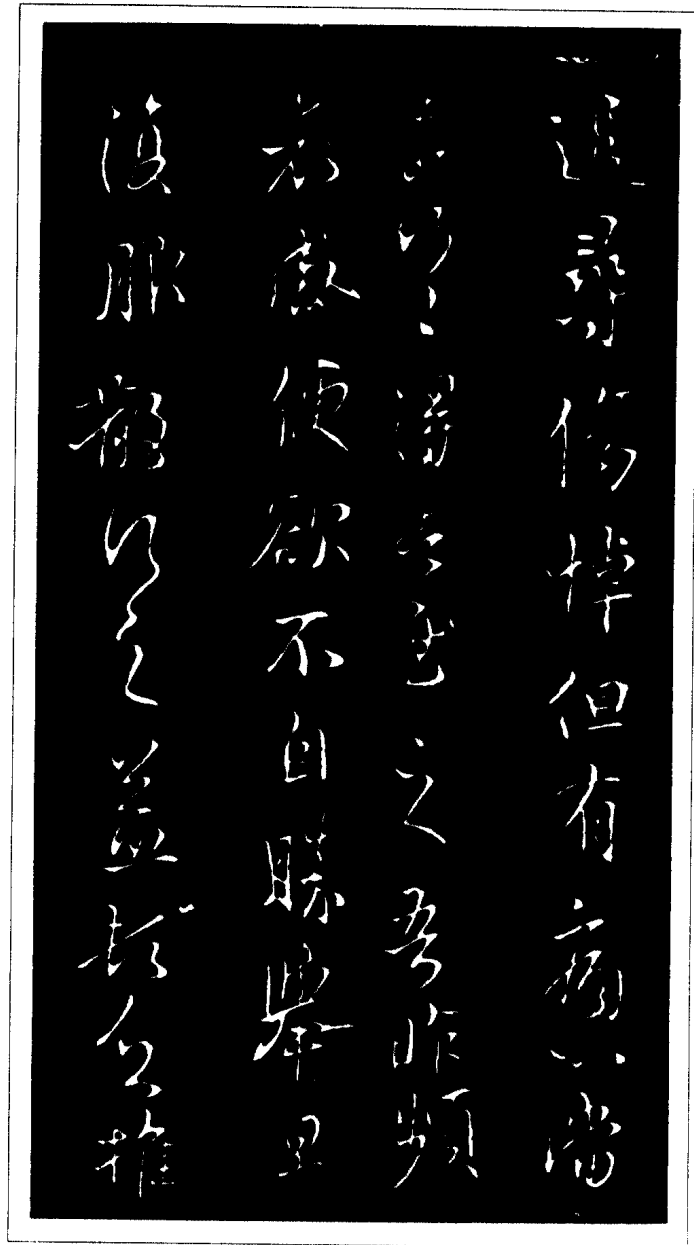 追尋傷悼但有痛心當
奈何〻〻得告慰之吾昨頻
哀感便欲不自勝舉旦
復服散行之益頓乏推